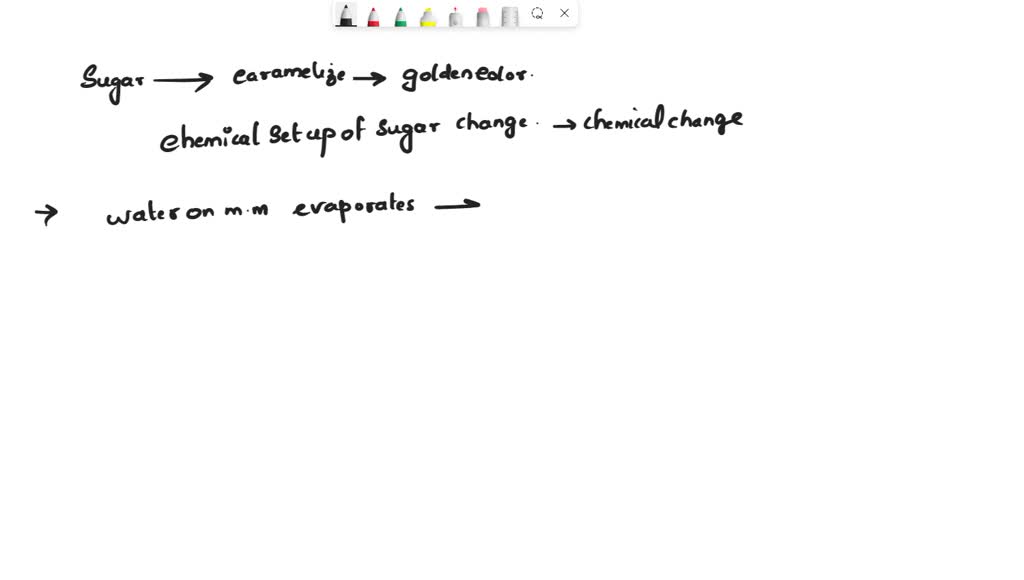 Sugar → caramelize → golden color.
chemical set up of sugar change. → chemical change
→ water on m.m evaporates →